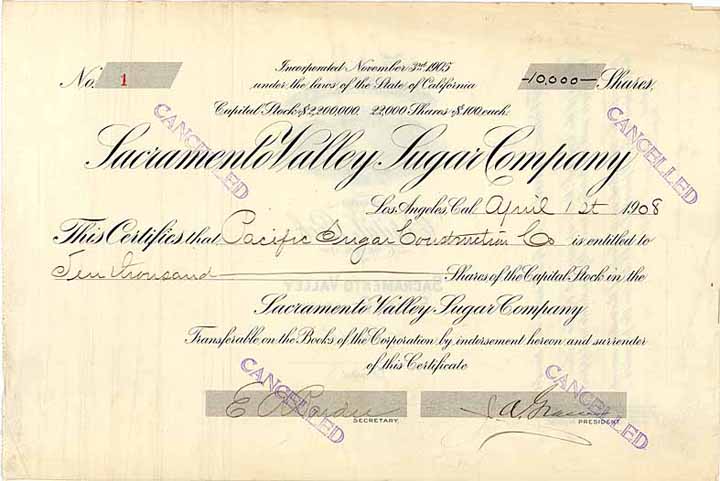 Incorporated November 3rd 1905
No. 1
under the laws of the State of California
-10,000- Shares.
Capital Stock $2,200,000. 22,000 Shares $100 each.
CANCELLED
CANCELLED
Sacramento Valley Sugar Company
Los Angeles, Cal. April 1st 1908
This Certifies that Pacific Sugar Construction Co is entitled to
Ten thousand Shares of the Capital Stock in the
SACRAMENTO VALLEY
Sacramento Valley Sugar Company
Transferable on the Books of the Corporation by indorsement hereon and surrender
of this Certificate
CANCELLED
CANCELLED
E C
SECRETARY.
J. A. Graves
PRESIDENT.